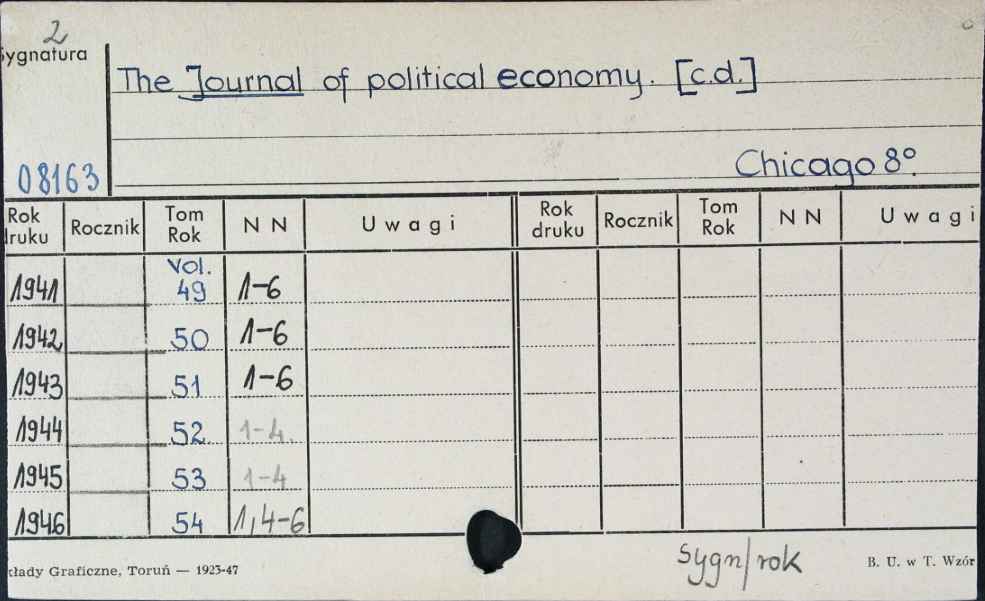 2
Sygnatura
The Journal of political economy. [c.d.]
08163
Chicago 8°.
Rok druku Rocznik Tom Rok N N Uwagi Rok druku Rocznik Tom Rok N N Uwagi
1941 Vol. 49 1-6
1942 50 1-6
1943 51 1-6
1944 52 1-4.
1945 53 1-4
1946 54 1,4-6
kłady Graficzne, Toruń — 1923-47
sygn/rok
B. U. w T. Wzór